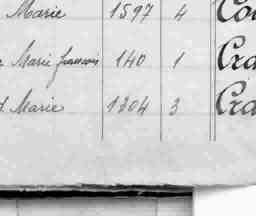 Marie 1597 4 Co
Marie francois 140 1 Cra
Marie 1304 3 Cra